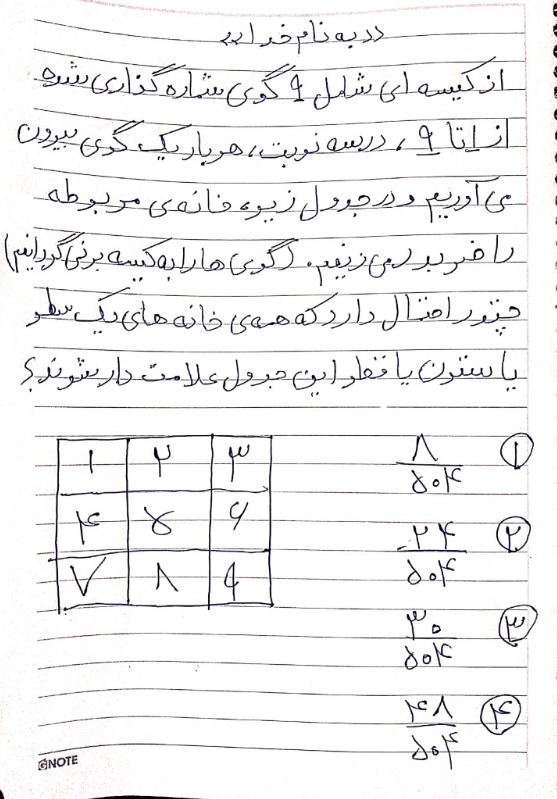 به نام خدا
از کیسه ای شامل ۹ گوی شماره گذاری شده
از ۱ تا ۹ ، در سه نوبت، هر بار یک گوی بیرون
می آوریم و در جدول زیر، خانه ی مربوطه
را ضربدر می زنیم. (گوی ها را به کیسه برنمی گردانیم)
چقدر احتمال دارد که همه ی خانه های یک سطر
یا ستون یا قطر این جدول علامت دار شوند؟
۱ ۲ ۳
۴ ۵ ۶
۷ ۸ ۹
۱ ۸/۵۰۴
۲ ۲۴/۵۰۴
۳ ۳۰/۵۰۴
۴ ۴۸/۵۰۴
GNOTE